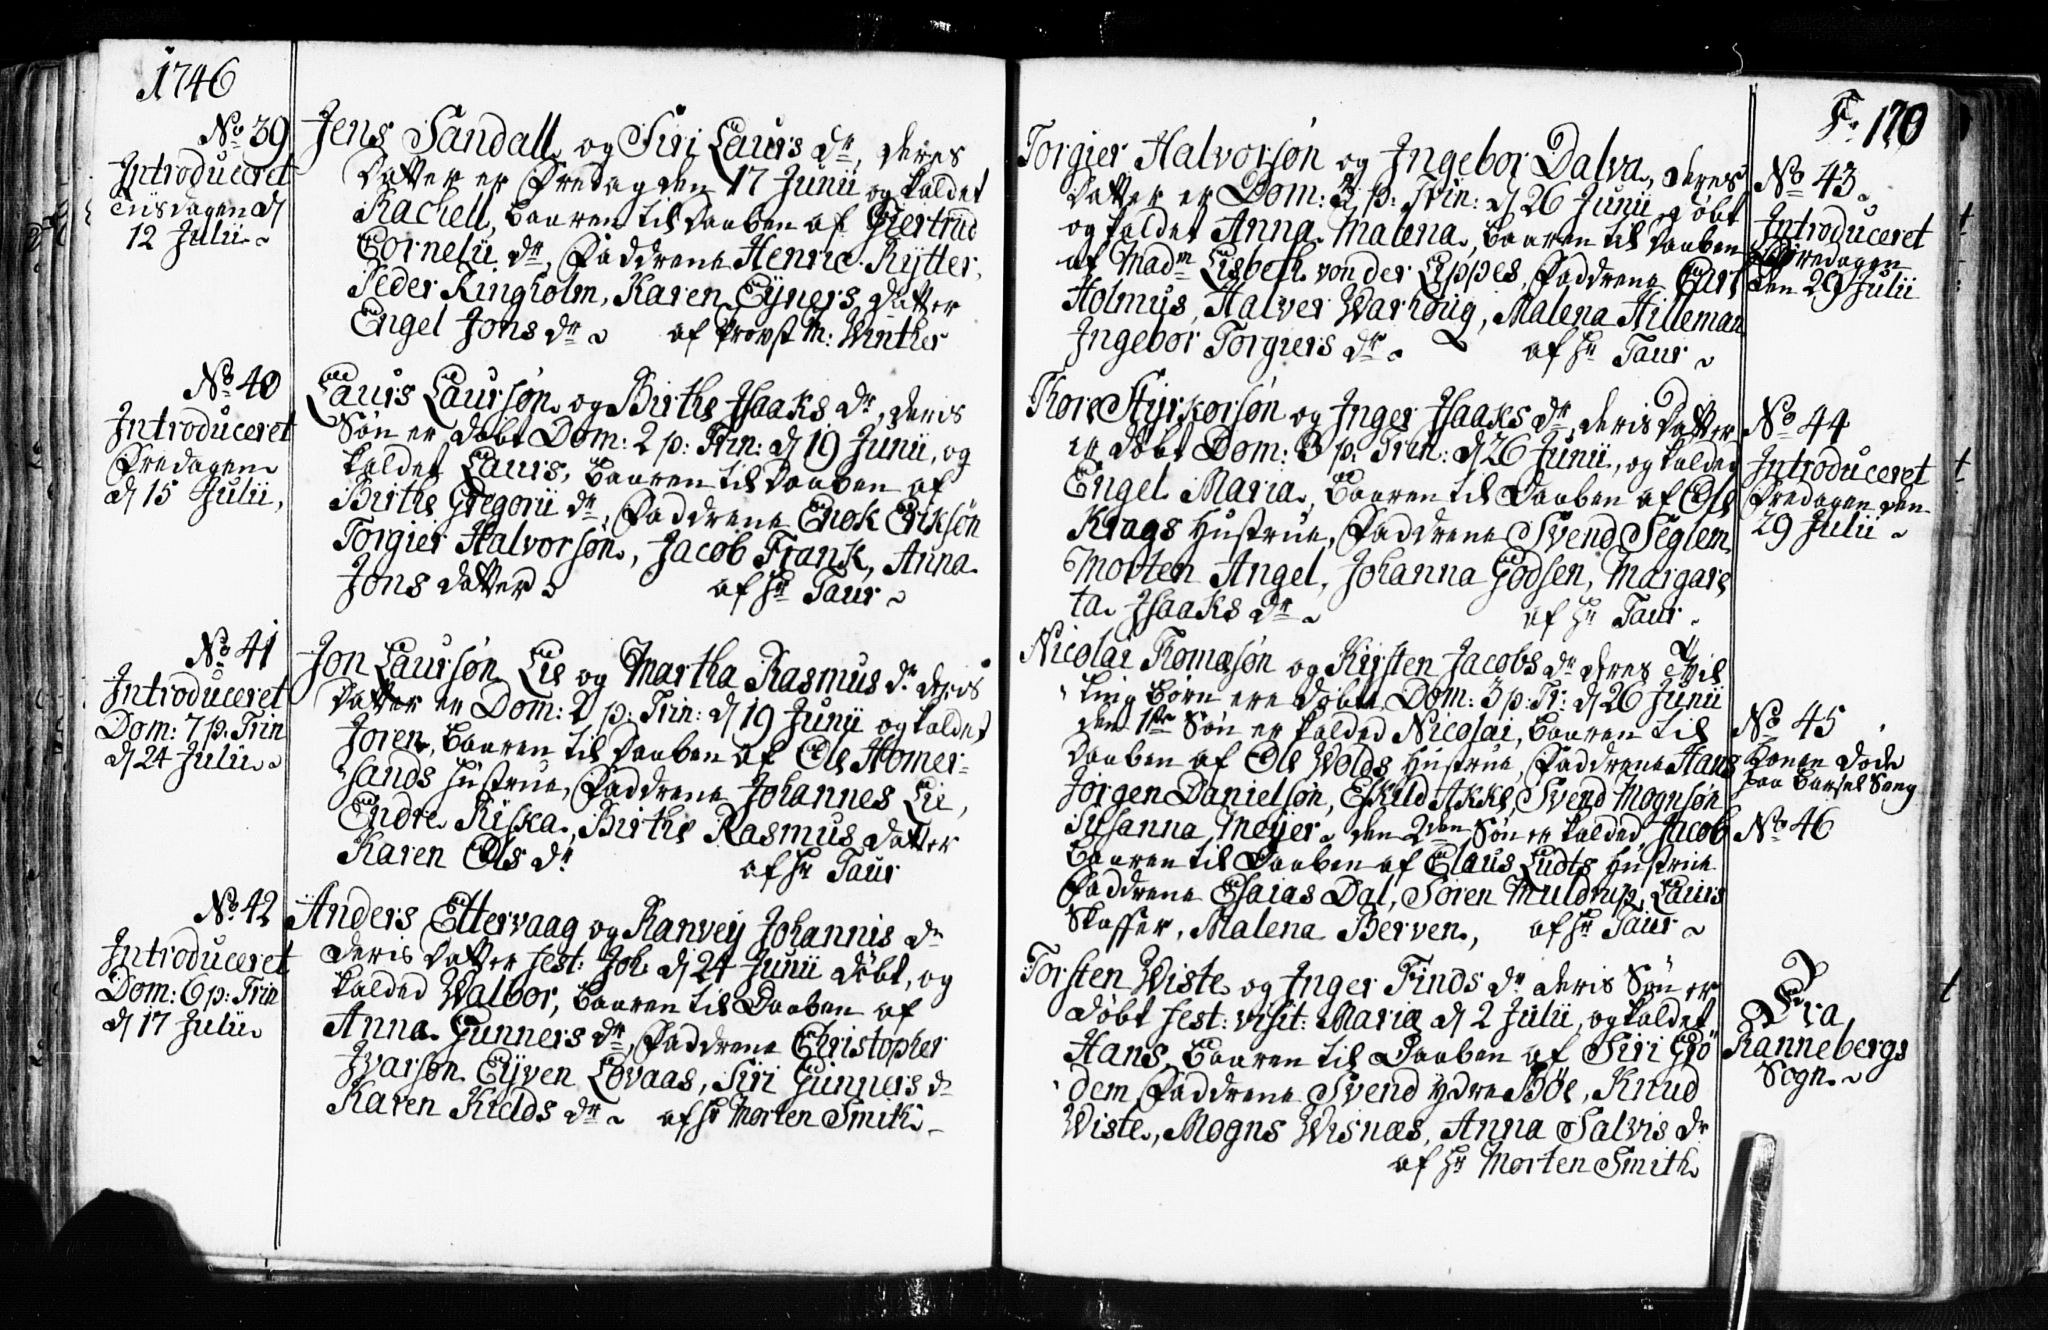 1746
No 39
Introduceret
Tiisdagen d
12 Julii
Jens Sandall og Siri Laurs dr, deres
Datter er Fredag den 17 Junii og kaldet
Rachell, baaren til Daaben af Giertrud
Cornelii dr, Faddrene Henric Rytter,
Peder Ringholm, Karen Eyners datter
Engel Jons dr af Provst M: Winther
No 40
Introduceret
Fredagen
d 15 Julii,
Laurs Laursøn og Birthe Isaaks dr, deris
Søn er døbt Dom: 2 p: Trin: d 19 Junii, og
kaldet Laurs, baaren til Daaben af
Birthe Gregorii dr, Faddrene Enok Eriksøn
Torgier Halvorsøn, Jacob Frank, Anna
Jons datter af Hr Taur
No 41
Introduceret
Dom: 7 p: Trin
d 24 Julii
Jon Laursøn Lie og Martha Rasmus dr deris
Datter er Dom: 2 p: Trin: d 19 Junii og kaldet
Joren, baaren til Daaben af Ole Homer-
sands Hustrue, Faddrene Johannes Lie,
Endre Riska, Birthe Rasmus datter
Karen Ols dr af Hr Taur
No 42
Introduceret
Dom: 6 p: Trin
d 17 Julii
Anders Ettervaag og Ranvey Johannis dr
deris Datter fest: Joh: d 24 Junii døbt, og
kalded Walbor, baaren til Daaben af
Anna Gunners dr, Faddrene Christopher
Ivarsøn Eyven Lovaas, Siri Gunners dr
Karen Kields dr af Hr Morten Smith
F. 120
Torgier Halvorsøn og Ingebor Dalva, deres
Datter er Dom: p: Trin: d 26 Junii døbt
og kaldet Anna Malena, baaren til Daaben
af Madm Lisbeth von der Lippes, Faddrene Curt
Holmus, Halver Warhoug, Malena Hilleman
Ingebor Torgiers dr af Hr Taur
No 43
Introduceret
Fredagen
den 29 Julii
Thore Styrkorsøn og Inger Isaaks dr, deris Datter
er døbt Dom: 3 p: Trin: d 26 Junii, og kalded
Engel Maria, baaren til Daaben af Ole
Krags Hustrue, Faddrene Svend Seglem
Morten Angel, Johanna Godsen, Margare
ta Isaaks dr af Hr Taur
No 44
Introduceret
Fredagen den
29 Julii
Nicolai Thomæsøn og Kirsten Jacobs dr deres Tvil
ling børn ere døbte Dom: 3 p: Tr: d 26 Junii
den 1ste Søn er kalded Nicolai, baaren til
Daaben af Ole Wolds Hustrue, Faddrene Hans
Jørgen Danielsøn, Eskild Akke, Svend Mognsøn
Susanna Meyer. den 2den Søn er kalded Jacob
baaren til Daaben af Claus Ludts Hustrue
Faddrene Esaias Dal, Søren Muldrup, Laurs
Skaffer, Malena Berven, af Hr Taur
No 45
Konen døde
paa Barsel Seng
No 46
Torsten Wiste og Inger Finds dr deris Søn er
døbt fest: visit: Mariæ d 2 Julii, og kaldet
Hans, baaren til Daaben af Siri Grö
dem, Faddrene Svend Ydre Böe, Knud
Wiste, Mogns Wisnæs, Anna Salvis dr
af Hr Morten Smith
Fra
Rannebergs
Sogn